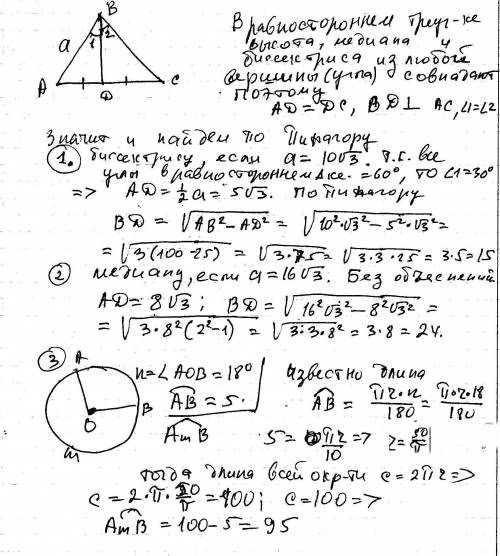 В равностороннем треуг-ке
высота, медиана и
биссектриса из любой
вершины (угла) совпадают
поэтому
AD = DC, BD ⊥ AC, ∠1=∠2
B
a
1 2
A D C
Значит и найдем по Пифагору
1. биссектрису, если a = 10√3. т.к. все
углы в равностороннем Δ-ке = 60°, то ∠1=30°
=> AD = ½a = 5√3. По Пифагору
BD = √(AB² − AD²) = √(10²·√3² − 5²·√3²) =
= √(3(100−25)) = √(3·75) = √(3·3·25) = 3·5 = 15
2 медиану, если a = 16√3. Без объяснений
AD = 8√3; BD = √(16²√3² − 8²√3²) =
= √(3·8²(2²−1)) = √(3·3·8²) = 3·8 = 24.
3
A
B
O
m
n = ∠AOB = 18°
AB = 5.
AmB
Известно длина
AB = πr·n/180 = πr·18/180
5 = πr/10 => r = 50/π
тогда длина всей окр-ти c = 2πr =>
c = 2·π·50/π = 100; c = 100 =>
AmB = 100 − 5 = 95